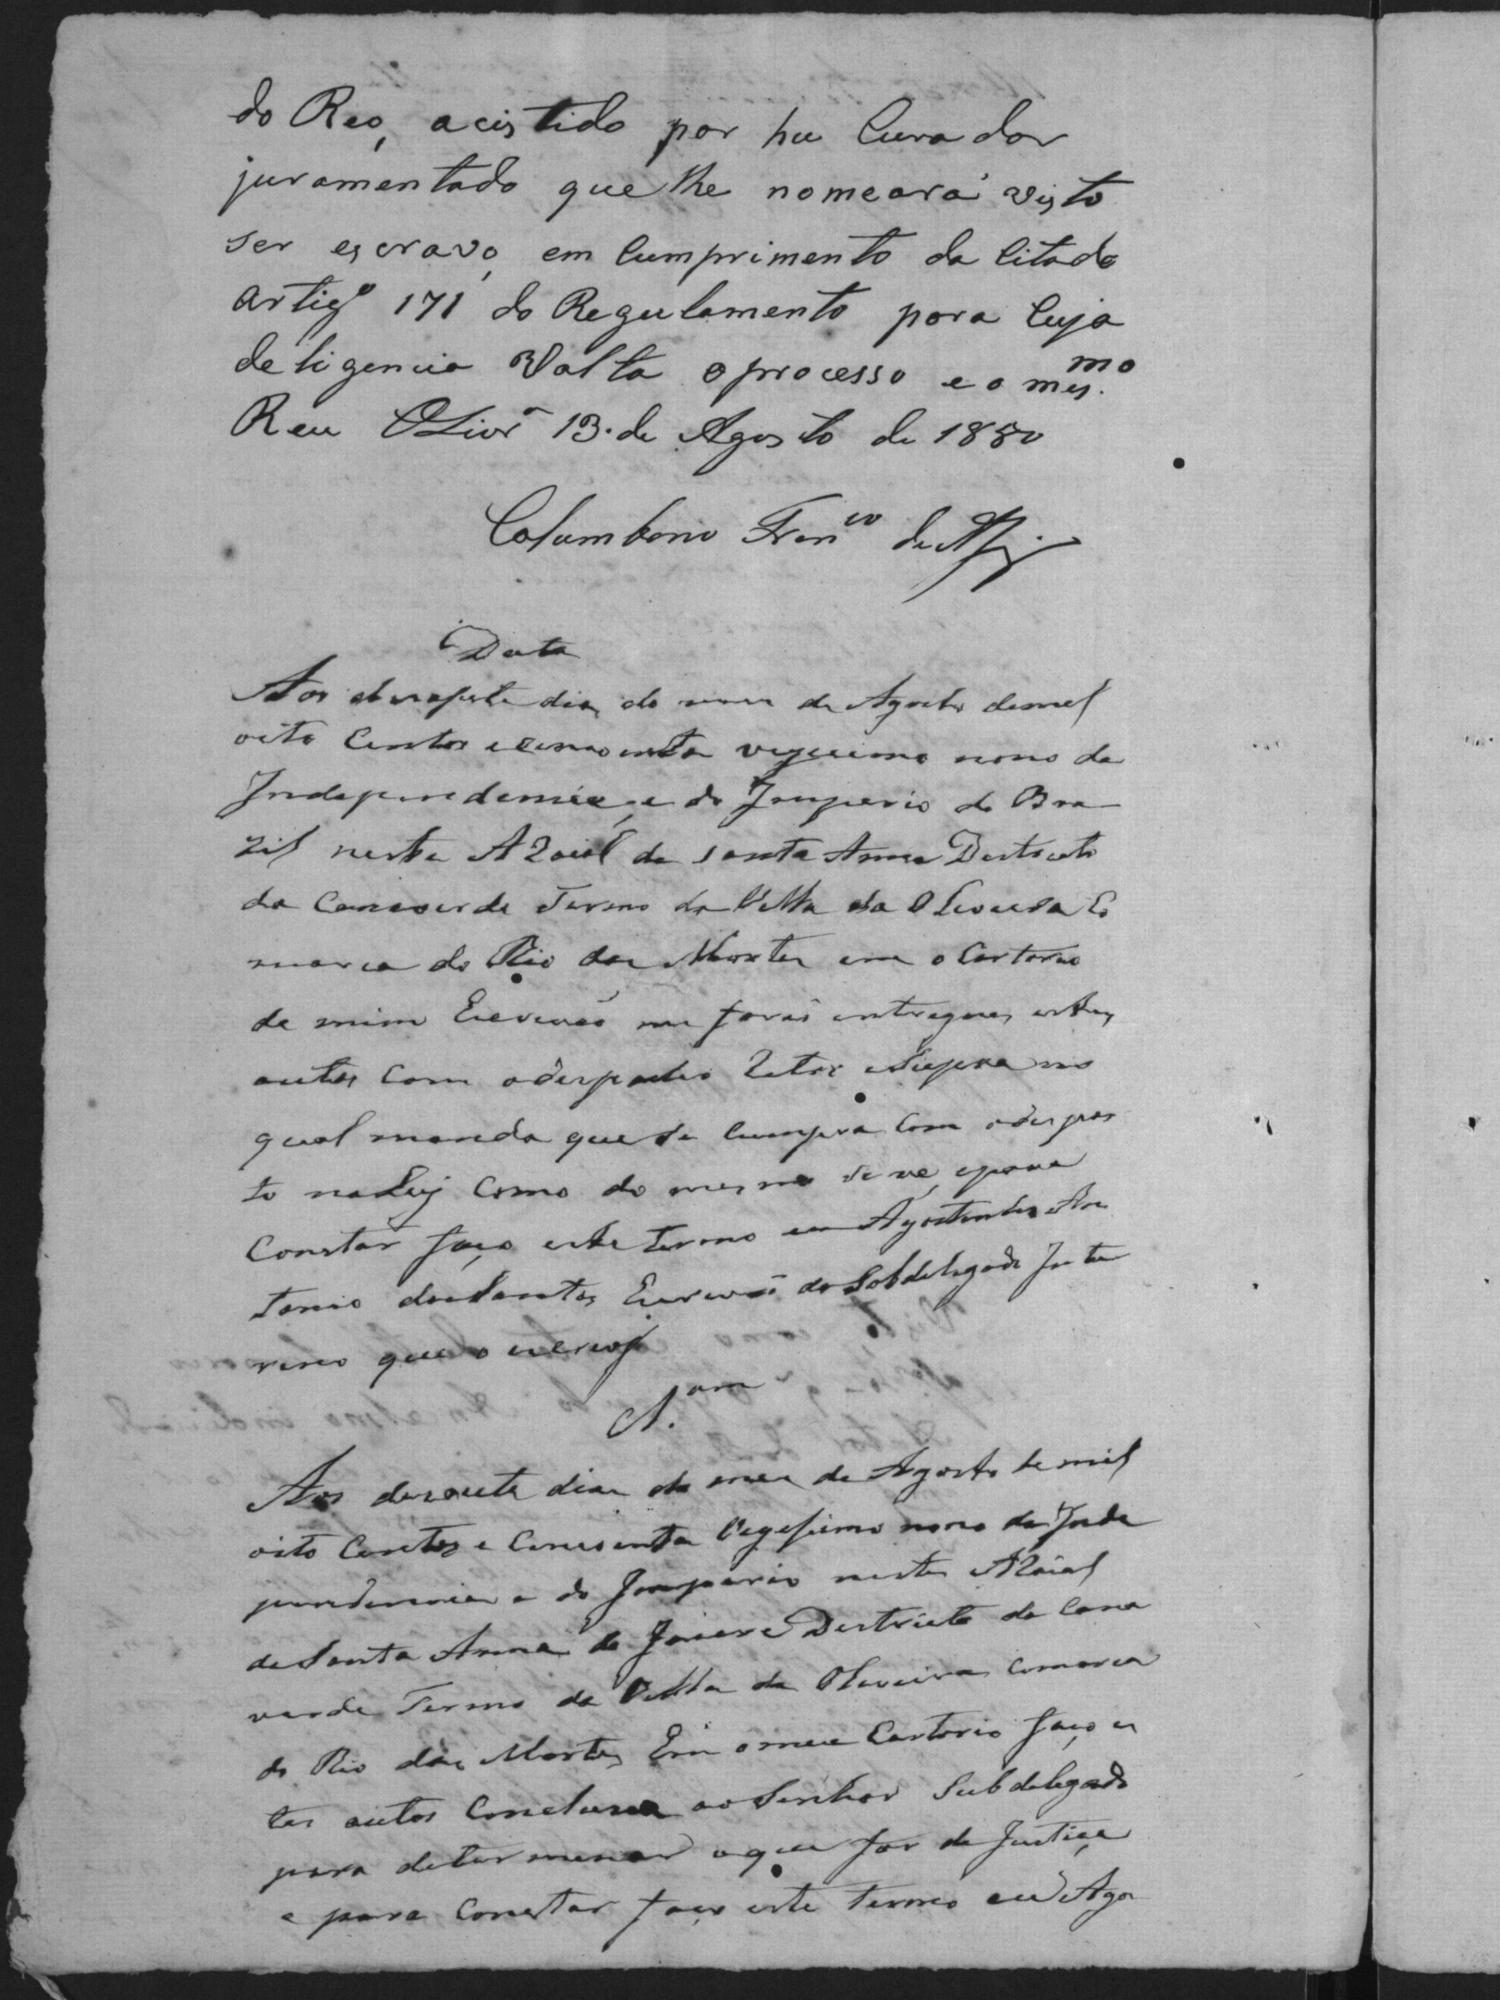 do Reo, acistido por hu Curador
juramentado que lhe nomeará visto
ser escravo, em Cumprimento da Citado
artigº 171 do Regulamento para Cuja
deligencia Volta o processo e o mes.mo
Reu Olivrª 13 de Agosto de 1850
Columbano Franco de
Data
Aos desasete dias do mes de Agosto demil
oito Centos e cincoenta vegecimo nono da
Independencia, e do Imperio do Bra-
zil neste ARaial de Santa Anna Destricto
da Canaverde Termo da Villa da Oliveira Co
marca do Rio das Mortes em o Cartorio
de mim Escrivaõ me foraõ entregues estes
autos Com odespacho Retro eSupra no
qual manda que se Cumpra Com odispos
to naLey Como do mesmo se vé, epara
Constar faço este termo eu Agostinho An
tonio dos Santos Escrivaõ do Subdelegado Inte
rino que o escrevy
A.am
Aos desasete dias do mes de Agosto de mil
oito Centos e Cincoenta Vegessimo nono da Inde
pendencia e do Imperio neste ARaial
de Santa Anna do Jacaré Destricto da Cana
verde Termo da Villa da Oliveira Comarca
do Rio das Mortes Em o meu Cartorio faço es
tes autos Conclusos ao Senhor Subdelegado
para determenar oque for de Justiça
e para Constar faço este termo eu Agos